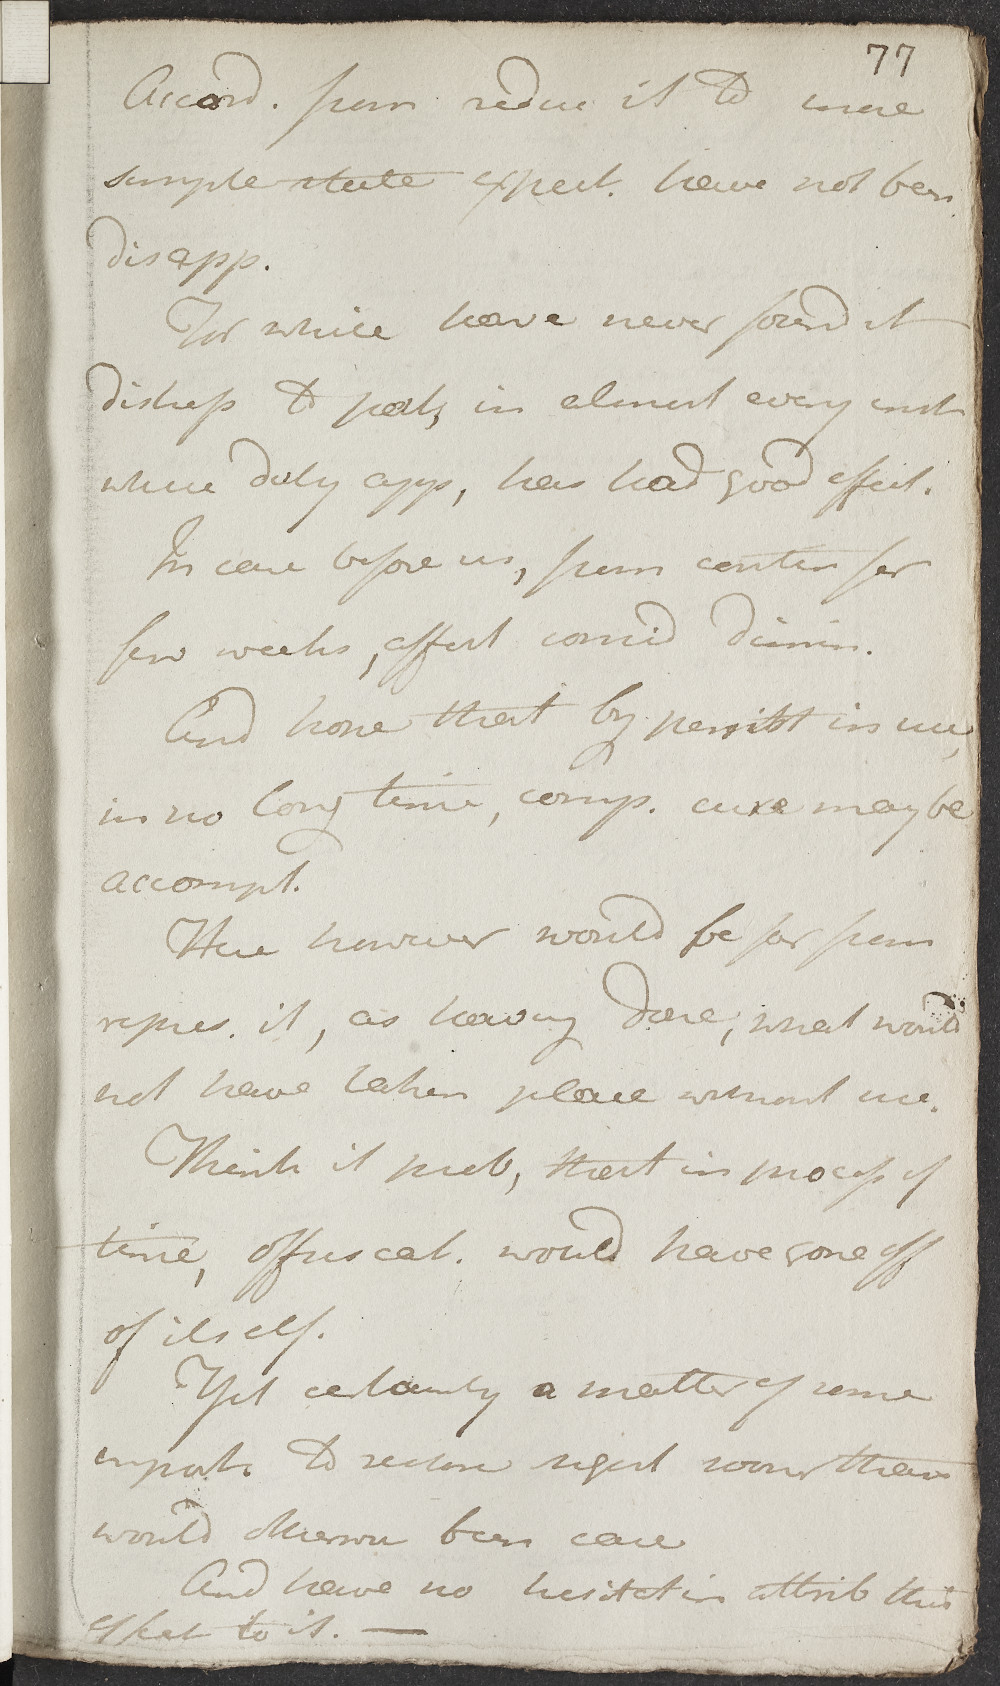 77
Accord. from reduc it to more
simple state expect. have not been
disapp.
For while have never found it
distress to pats, in almost every inst
where duly app, has had good effect.
In case before us, from contin for
few weeks, affect consid dimin.
And hope that by persist in use,
in no long time, comp. cure may be
accompl.
Here however would be far from
repres. it, as having done, what would
not have taken place without use.
Think it prob, that in process of
time, offuscat. would have gone off
of itself.
Yet certainly a matter of some
import. to restore sight sooner than
would otherwise been case
And have no hesitat in attrib this
effect to it. —